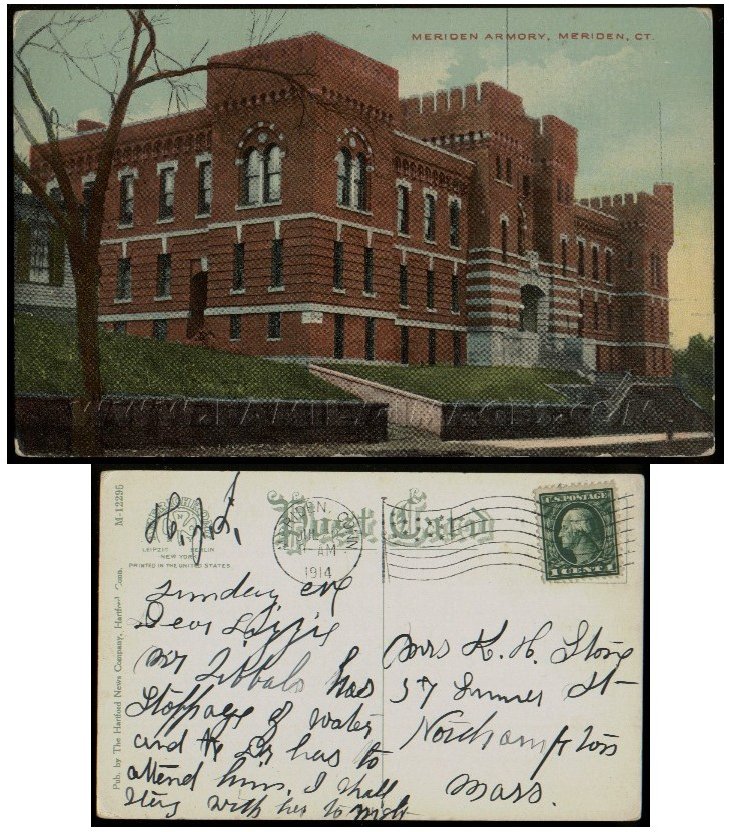 MERIDEN ARMORY, MERIDEN, CT.
M-12295
Pub. by The Hartford News Company, Hartford, Conn.
LEIPZIG BERLIN
NEW YORK
PRINTED IN THE UNITED STATES
Post Card
MERIDEN, CONN.
AM
1914
U.S. POSTAGE
1 CENT 1
Sunday eve
Dear Lizzie
Mr Tibbals has
Stoppage of water
and the Dr has to
attend him. I shall
stay with her to night
Mrs K. H. Stone
37 Summer St
Northampton
Mass.